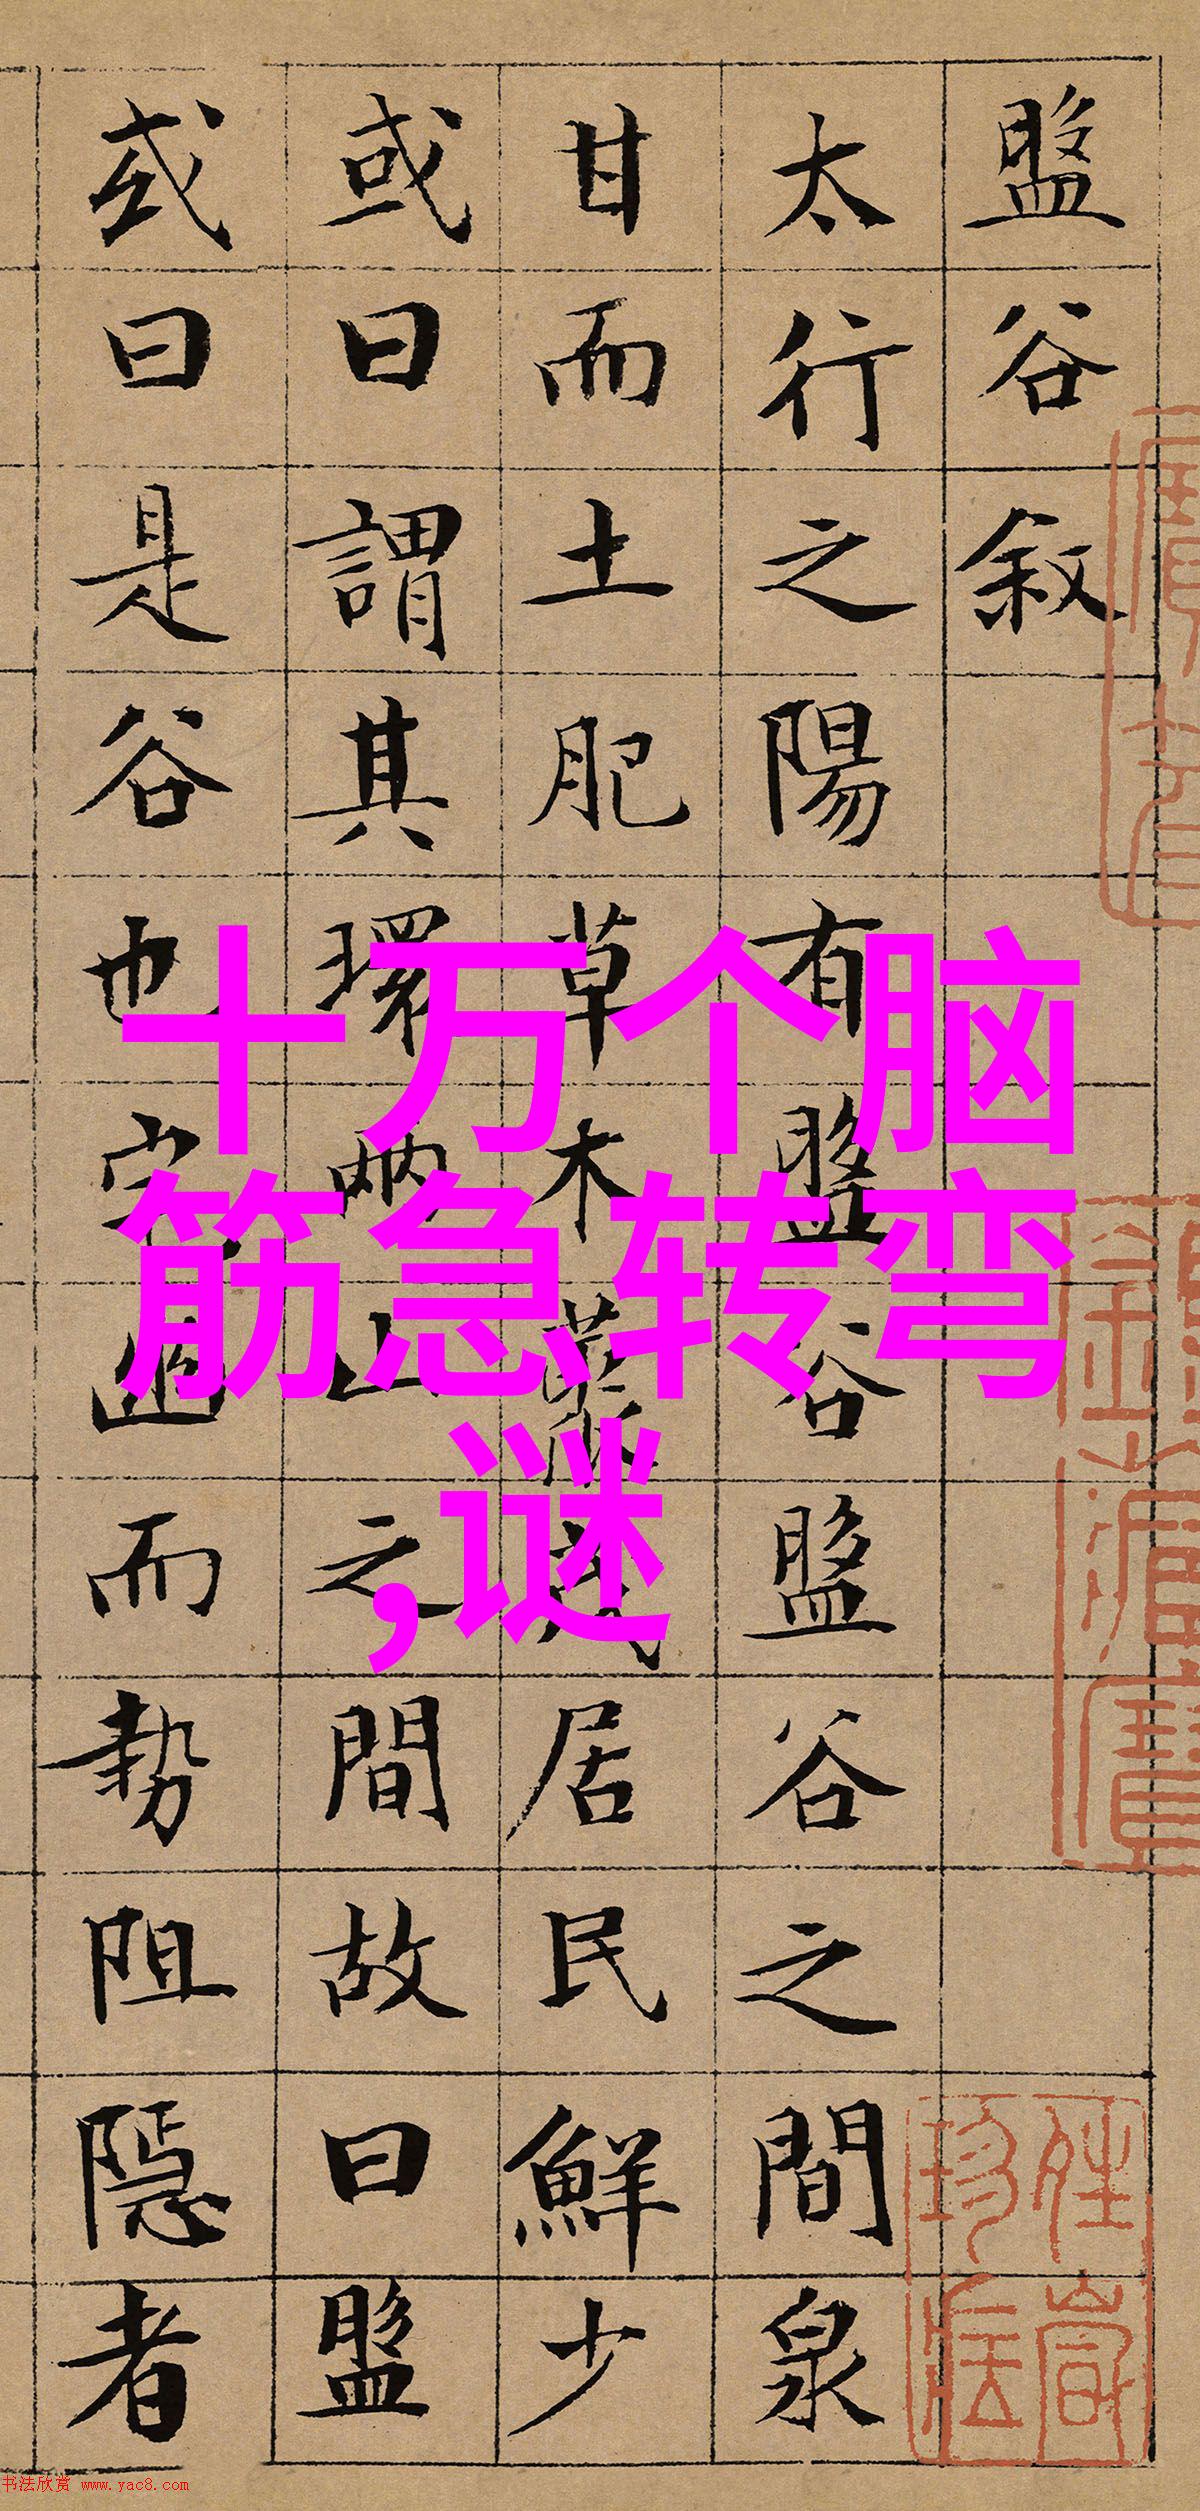 盤谷敘
太行之陽有盤谷盤谷之間泉
甘而土肥草木藂茂居民鮮少
或曰謂其環兩山之間故曰盤
或曰是谷也宅幽而勢阻隱者
十万个脑
筋急转弯
,谜
书法欣赏 www.yac8.com